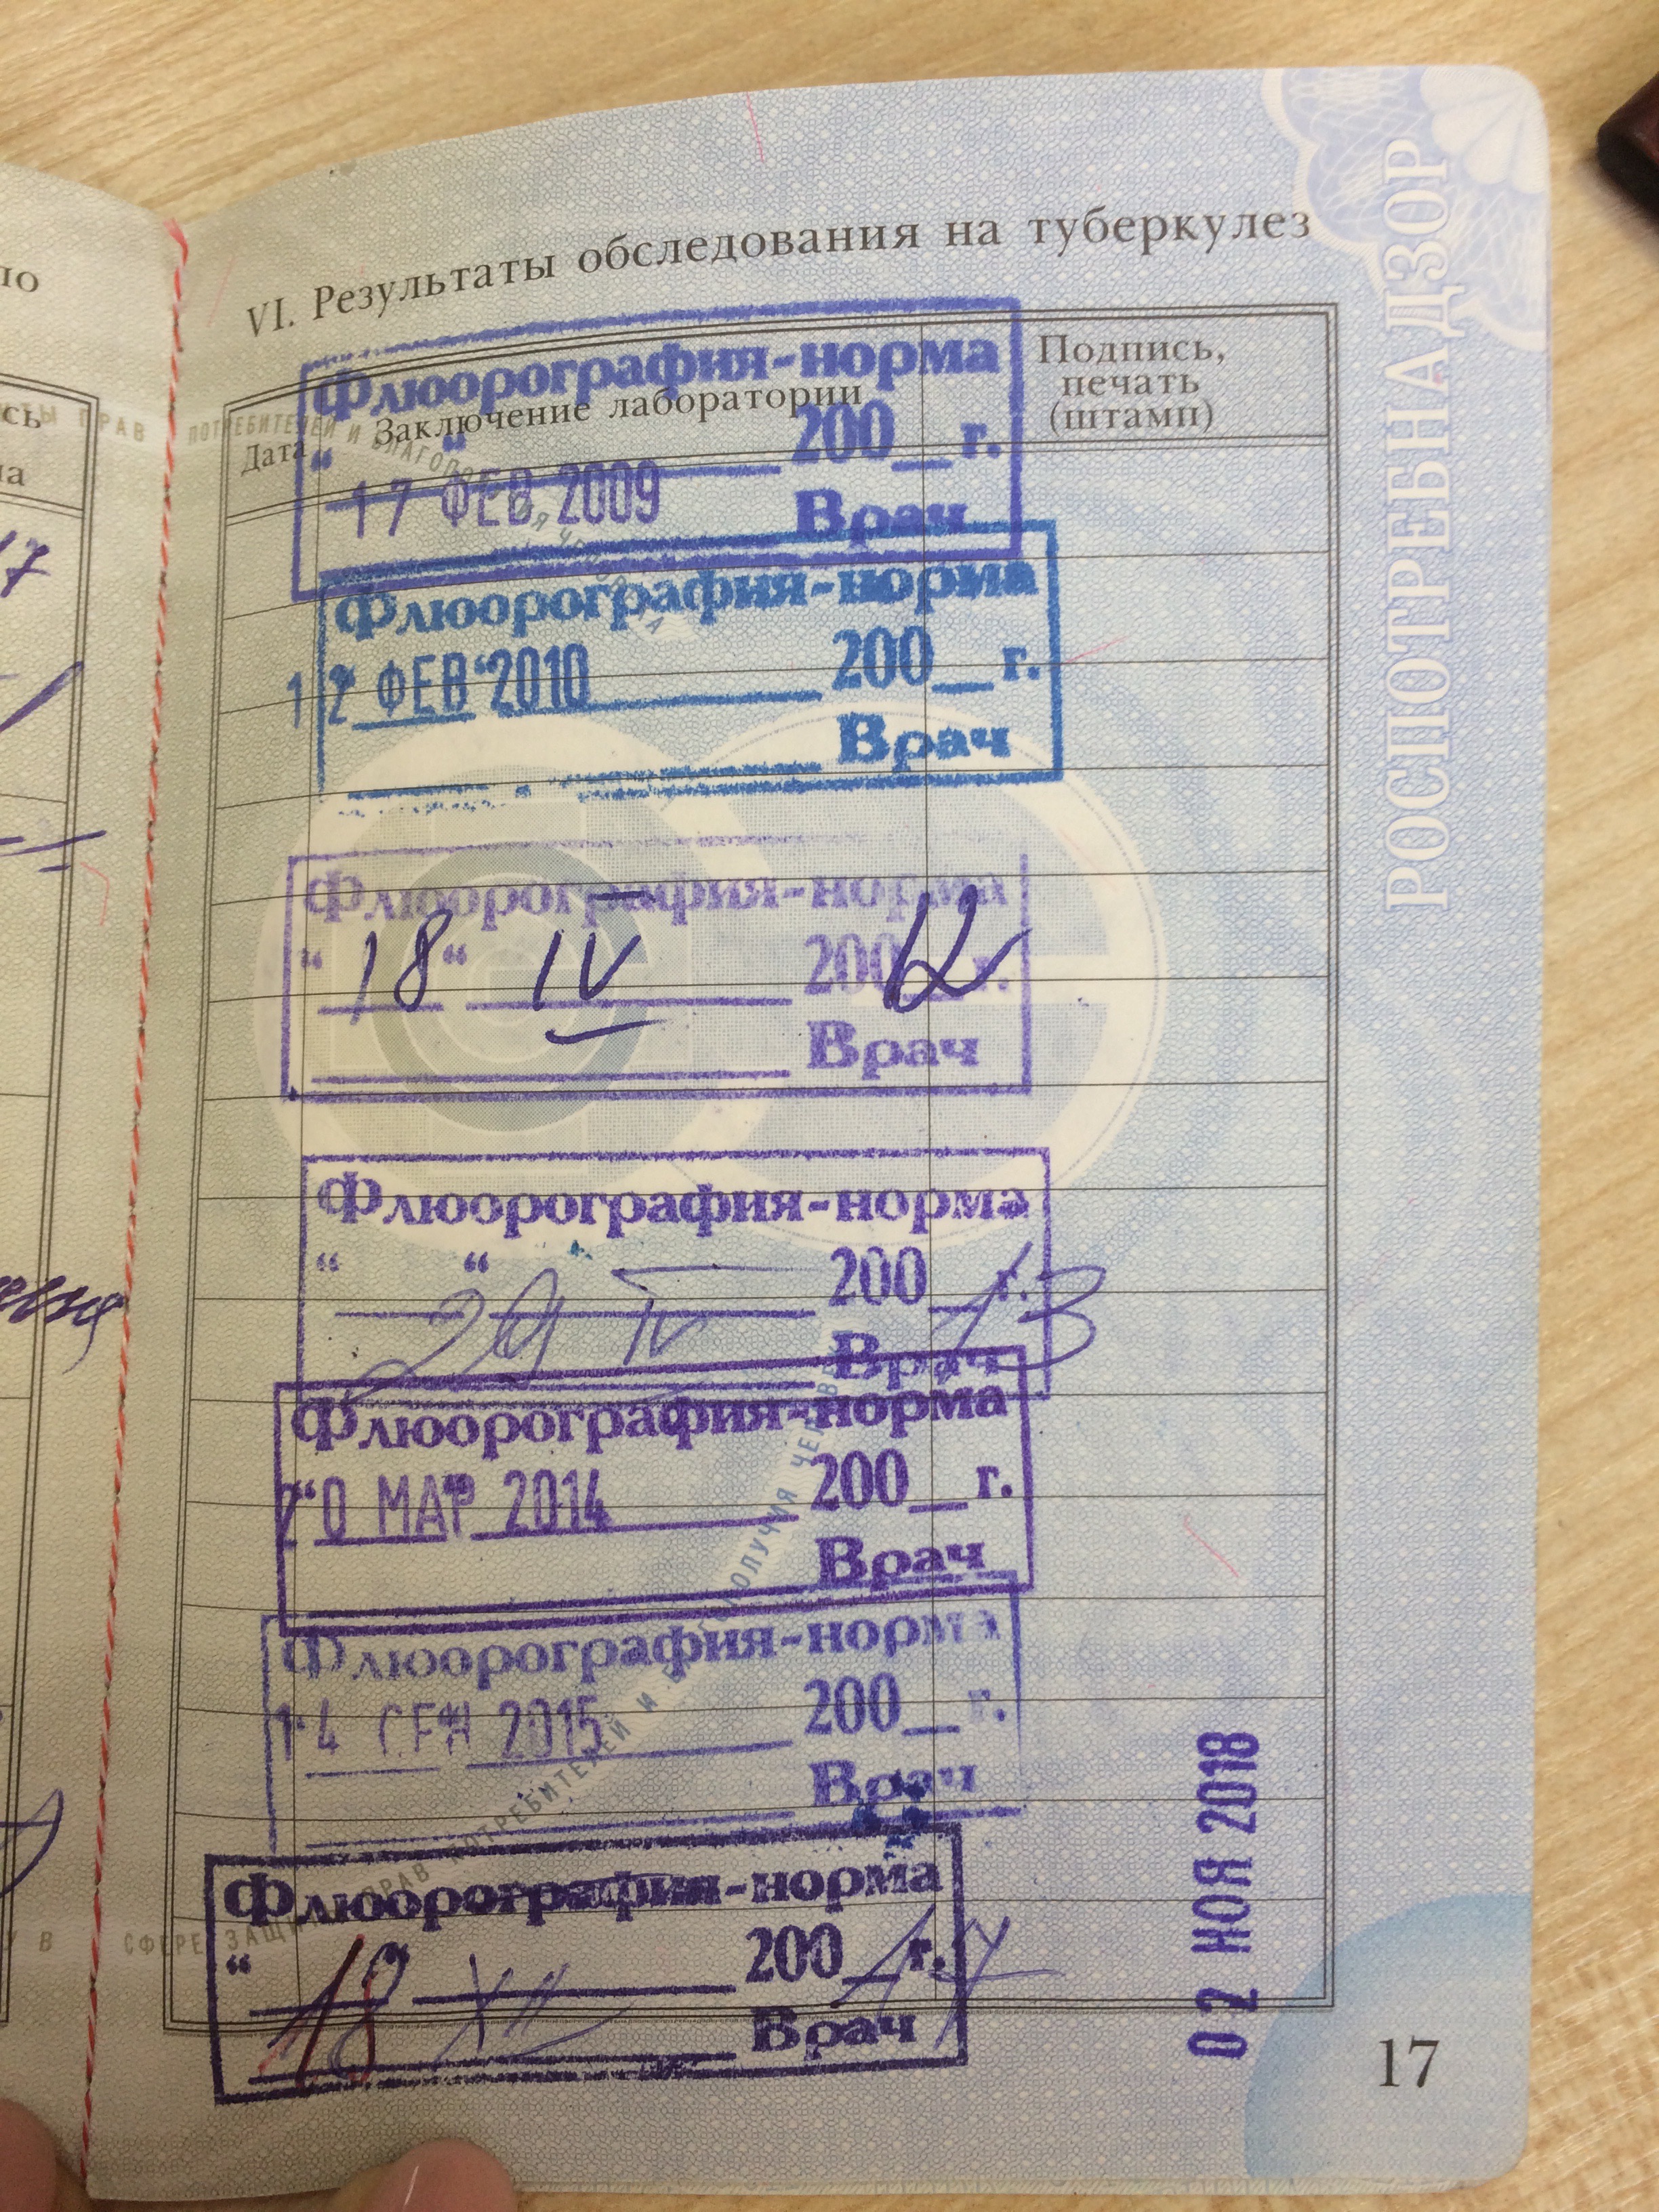 VI. Результаты обследования на туберкулез
Дата
Заключение лаборатории
Подпись,
печать
(штамп)
Флюорография-норма
“ “ 200 г.
17 ФЕВ 2009
Врач
Флюорография-норма
12 ФЕВ 2010 200 г.
Врач
Флюорография-норма
“ 18 “ IV 200 12 г.
Врач
Флюорография-норма
“ “ 200 г.
29 IV 13
Врач
Флюорография-норма
20 МАР 2014 200 г.
Врач
Флюорография-норма
14 СЕН 2015 200 г.
Врач
Флюорография-норма
“ 18 XII 200 г. 17
Врач
02 НОЯ 2018
РОСПОТРЕБНАДЗОР
17